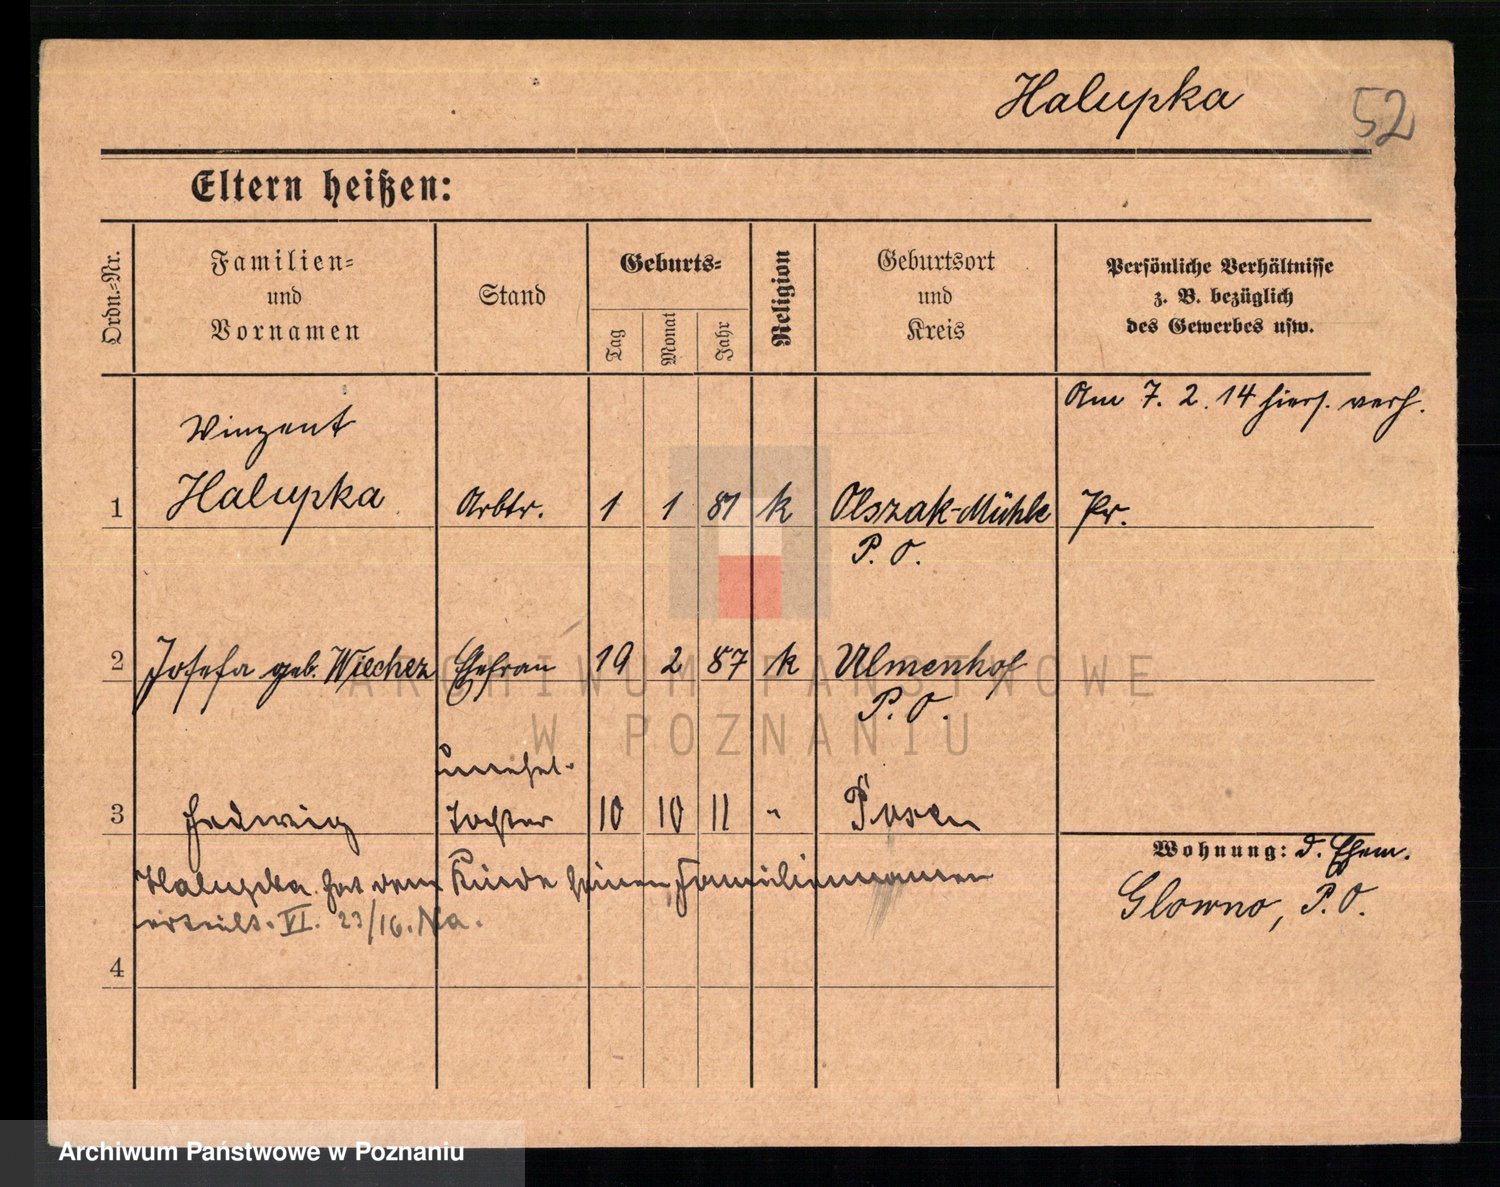 Halupka
52
Eltern heißen:
Ordn.-Nr.
Familien-
und
Vornamen
Stand
Geburts-
Tag
Monat
Jahr
Religion
Geburtsort
und
Kreis
Persönliche Verhältnisse
z. B. bezüglich
des Gewerbes usw.
Am 7. 2. 14 hiers. verh.
Winzent
1 Halupka Arbtr. 1 1 87 k Olszak-Mühle Pr.
P. O.
2 Josefa geb. Wiechez Ehefrau 19 2 87 k Ulmenhof
P. O.
unehel.
3 Hedwig Tochter 10 10 11 " Posen
Wohnung: d. Ehem.
Halupka hat dem Kinde seinen Familiennamen
Glowno, P. O.
erteilt. VI. 23/16. Na.
4
ARCHIWUM PAŃSTWOWE
W POZNANIU
Archiwum Państwowe w Poznaniu